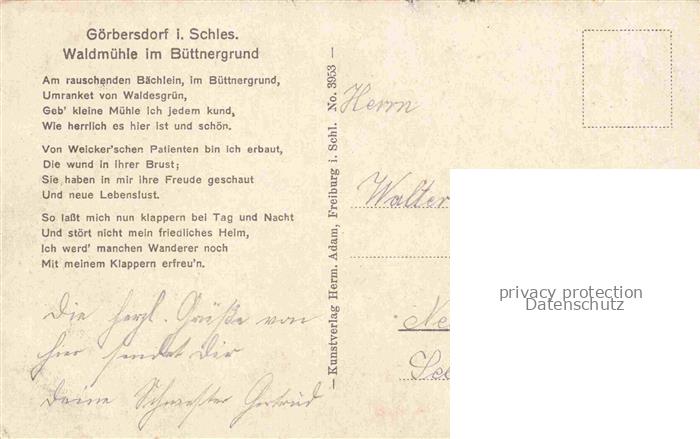 Görbersdorf i. Schles.
Waldmühle im Büttnergrund
Am rauschenden Bächlein, im Büttnergrund,
Umranket von Waldesgrün,
Geb' kleine Mühle ich jedem kund,
Wie herrlich es hier ist und schön.
Von Weicker'schen Patienten bin ich erbaut,
Die wund in ihrer Brust;
Sie haben in mir ihre Freude geschaut
Und neue Lebenslust.
So laßt mich nun klappern bei Tag und Nacht
Und stört nicht mein friedliches Heim,
Ich werd' manchen Wanderer noch
Mit meinem Klappern erfreu'n.
Die herzl. Grüße von
hier sendet Dir
Deine Schwester Gertrud
—Kunstverlag Herm. Adam, Freiburg i. Schl. No. 3953 —
Herrn
Walter
Ne
privacy protection
Datenschutz